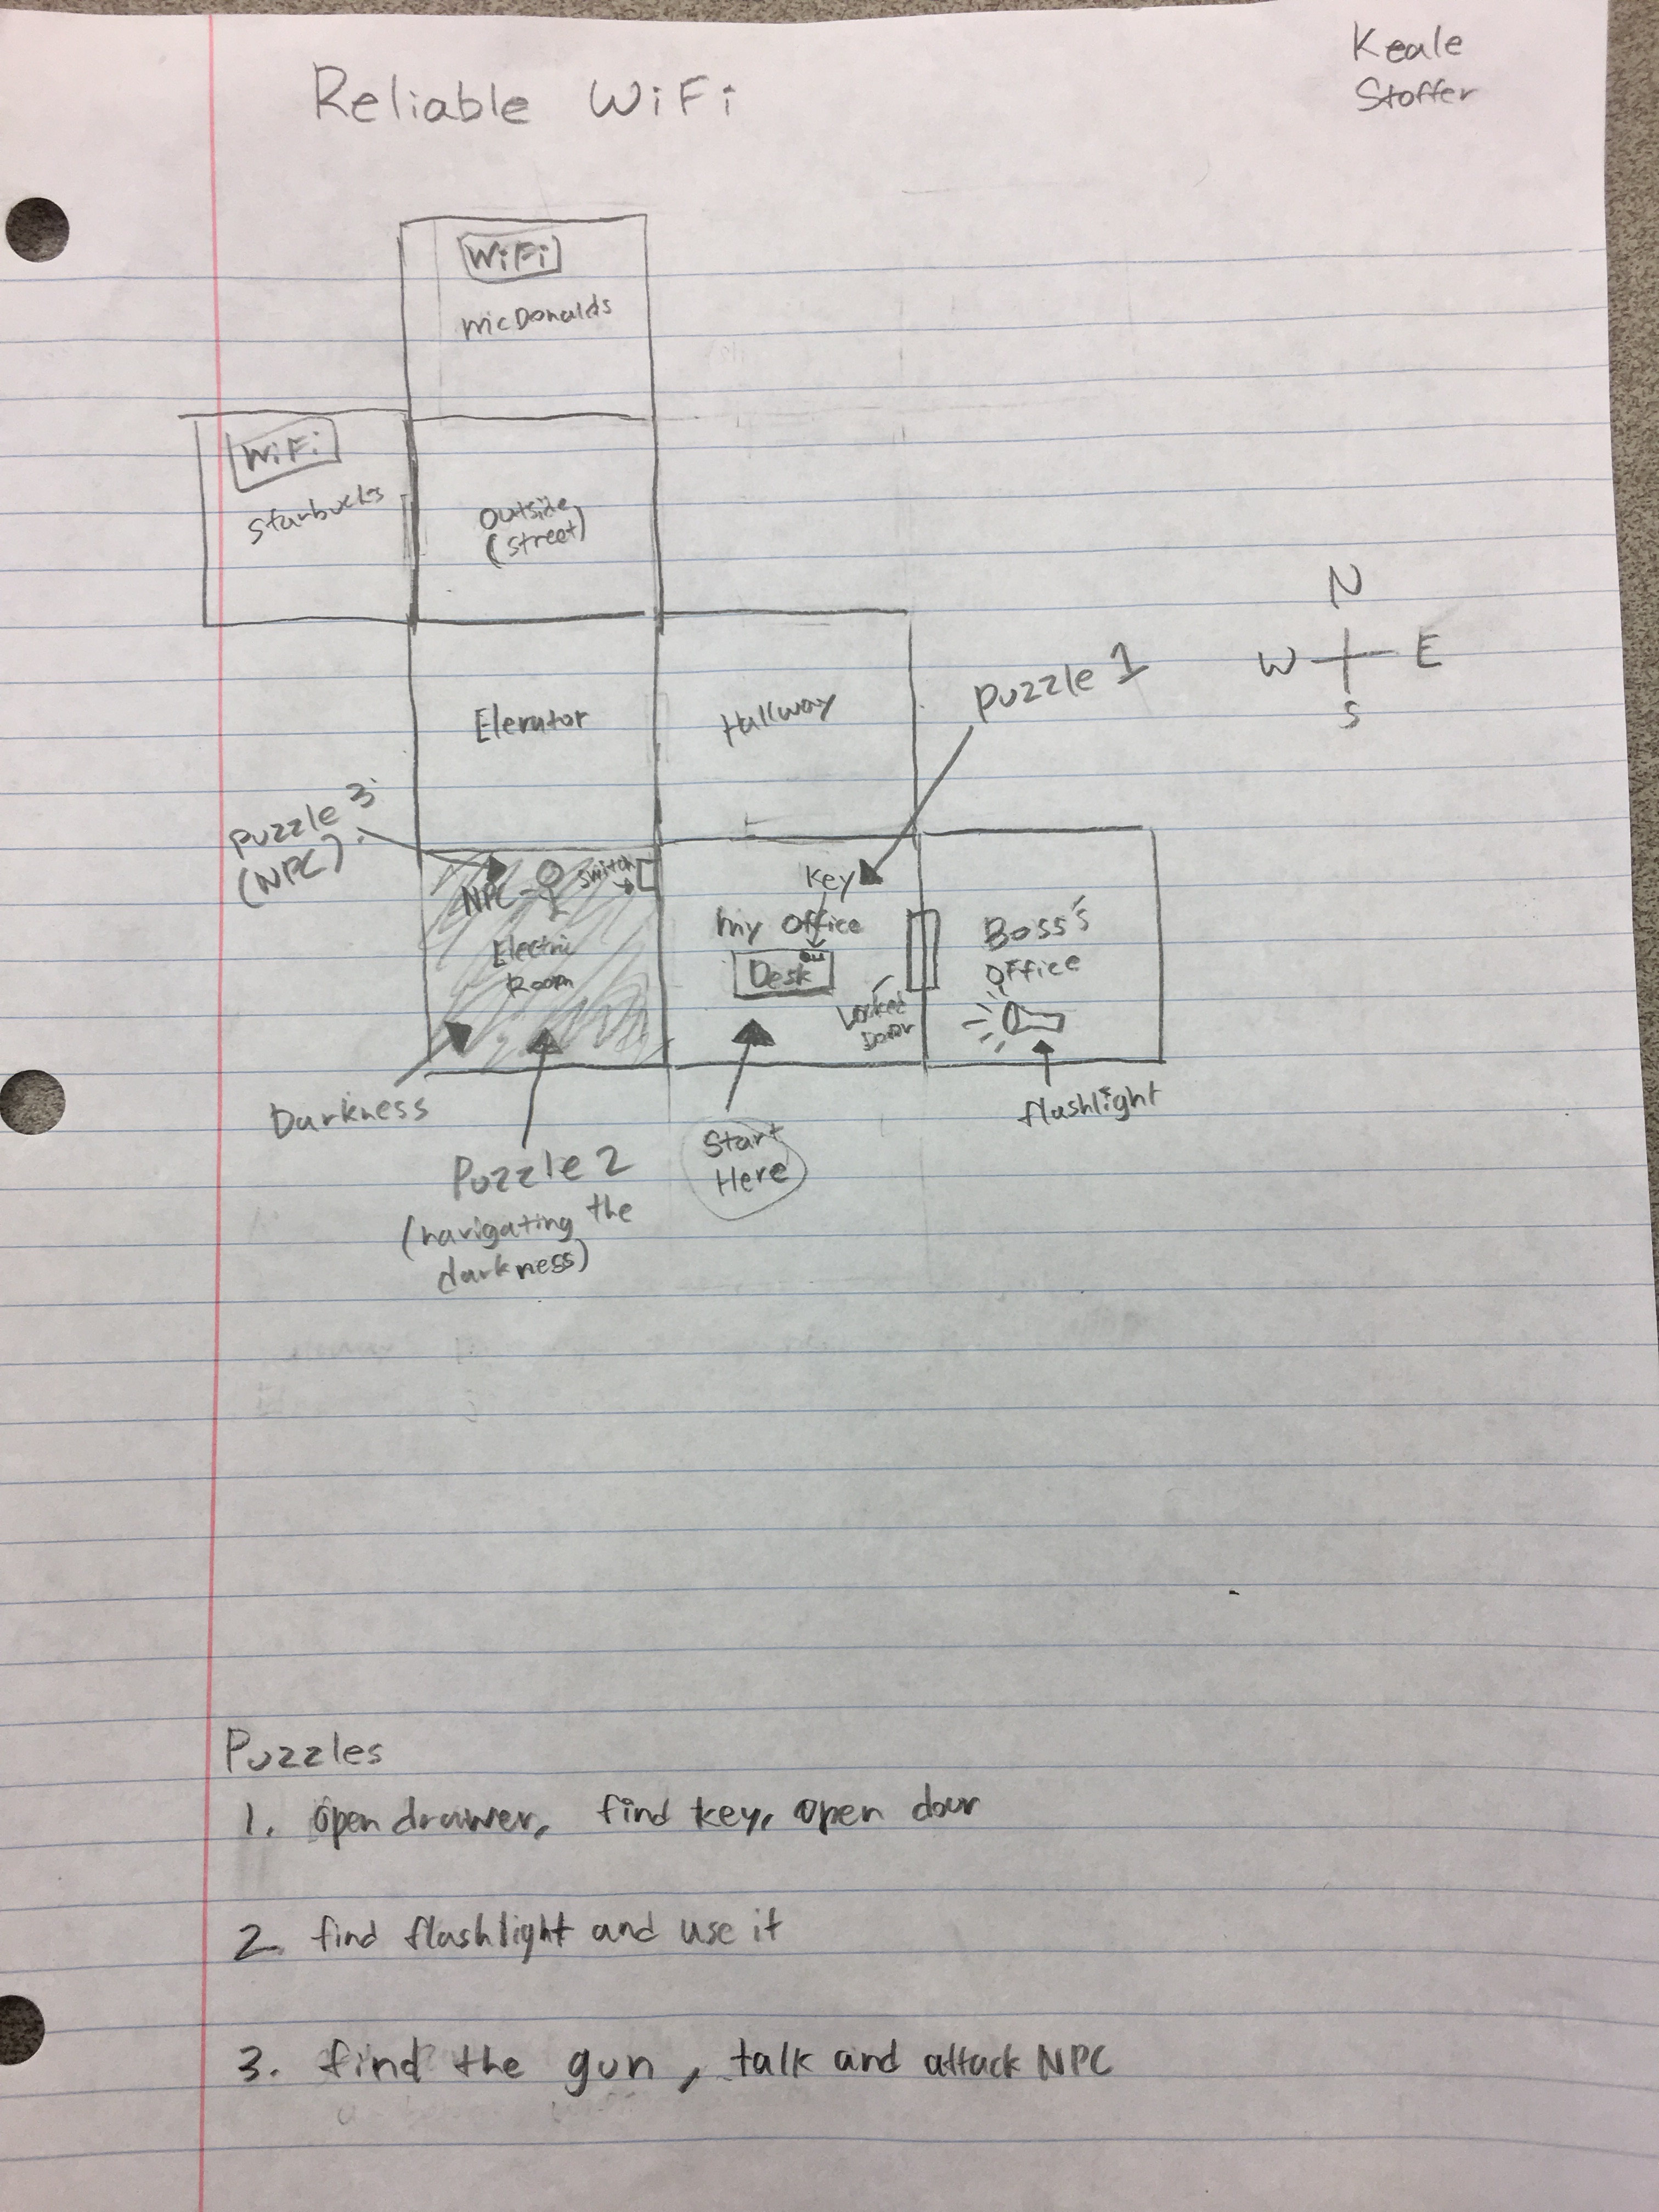 Keale
Stoffer
Reliable WiFi
WiFi
McDonalds
WiFi
Starbucks
Outside
(street)
N
W E
S
Elevator
Hallway
Puzzle 1
Puzzle 3
(NPC)
NPC
switch
Electric
Room
Key
My Office
Desk
Locked
Door
Boss's
Office
flashlight
Darkness
Puzzle 2
(navigating the
darkness)
Start
Here
Puzzles
1. Open drawer, find key, open door
2. find flashlight and use it
3. find the gun, talk and attack NPC